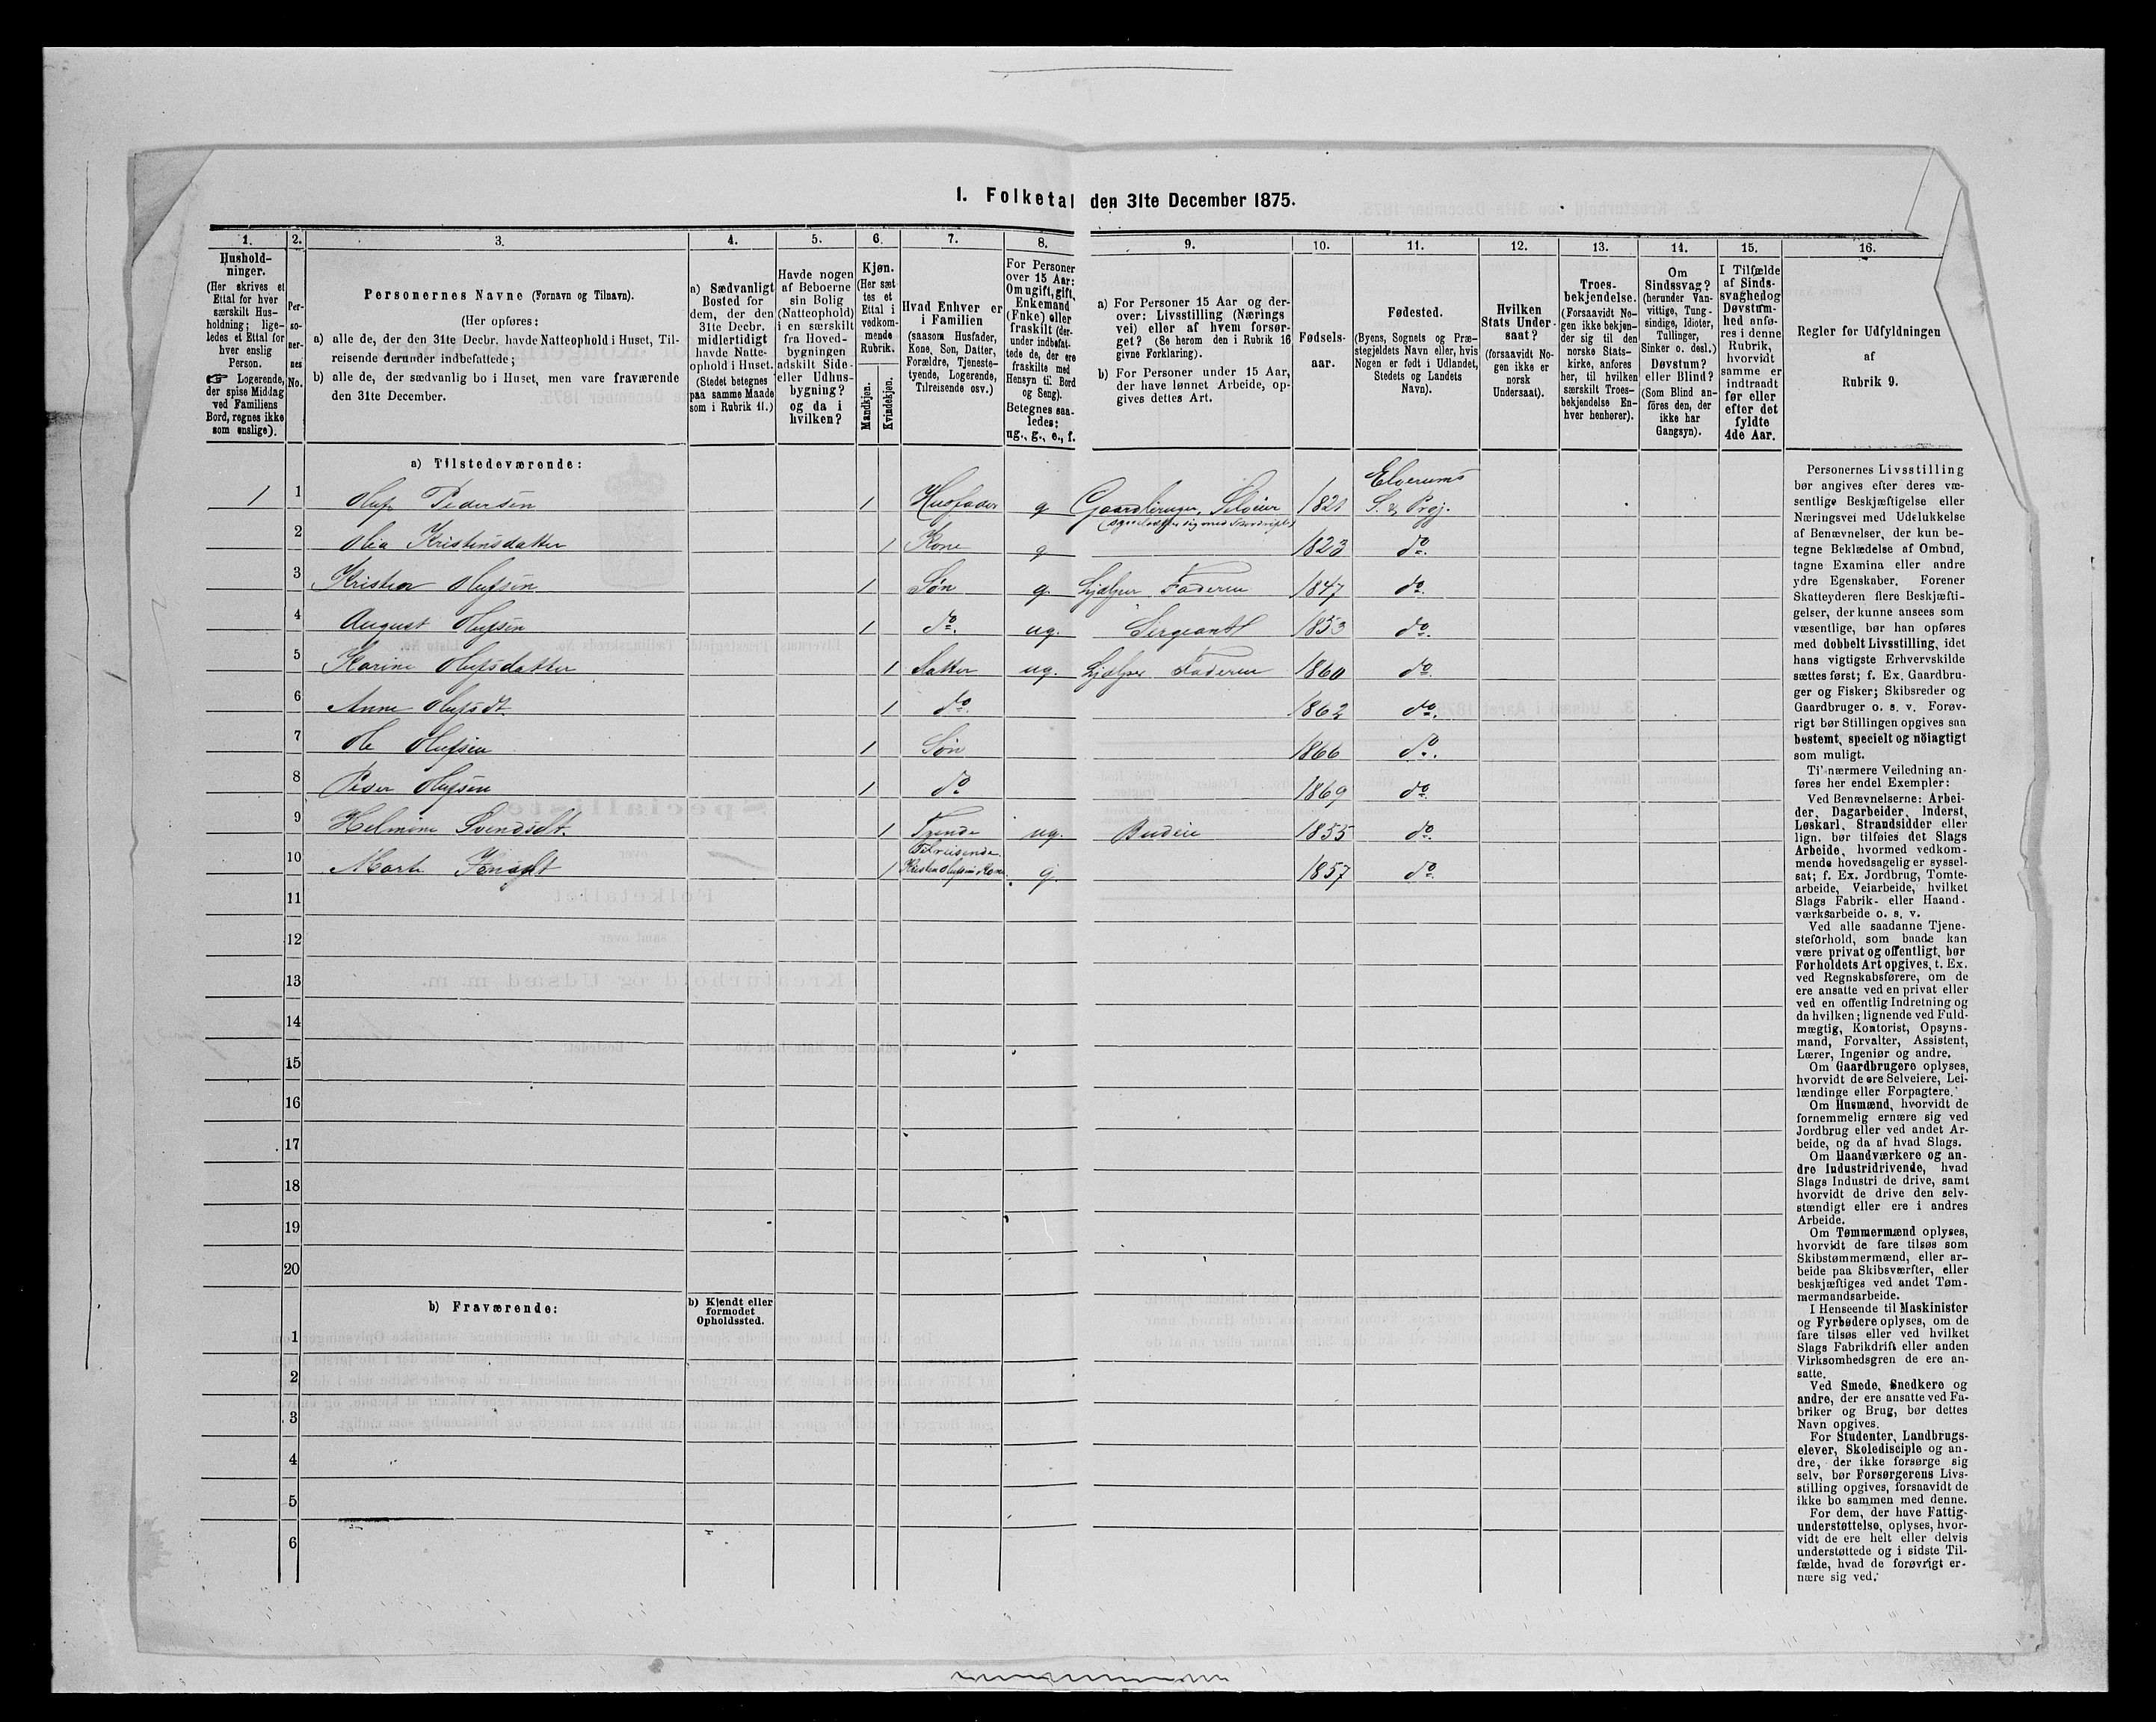 I. Folketal den 31te December 1875.
1. 2. 3. 4. 5. 6. 7. 8. 9. 10. 11. 12. 13. 14. 15. 16.
Hushold-
ninger.
(Her skrives et
Ettal for hver
særskilt Hus-
holdning; lige-
ledes et Ettal for
hver enslig
Person.
☞ Logerende,
der spise Middag
ved Familiens
Bord, regnes ikke
som enslige).
Per-
so-
ner-
nes
No.
Personernes Navne (Fornavn og Tilnavn).
(Her opføres:
a) alle de, der den 31te Decbr. havde Natteophold i Huset, Til-
reisende derunder indbefattede;
b) alle de, der sædvanlig bo i Huset, men vare fraværende
den 31te December.
a) Sædvanligt
Bosted for
dem, der den
31te Decbr.
midlertidigt
havde Natte-
ophold i Huset.
(Stedet betegnes
paa samme Maade
som i Rubrik 11.)
Havde nogen
af Beboerne
sin Bolig
(Natteophold)
i en særskilt
fra Hoved-
bygningen
adskilt Side-
eller Udhus-
bygning?
og da i
hvilken?
Kjøn.
(Her sæt
tes et
Ettal i
vedkom-
mende
Rubrik.
Mandkjøn.
Kvindekjøn.
Hvad Enhver er
i Familien
(saasom Husfader,
Kone, Søn, Datter,
Forældre, Tjeneste-
tyende, Logerende,
Tilreisende osv.)
For Personer
over 15 Aar:
Om ugift, gift,
Enkemand
(Enke) eller
fraskilt (der-
under indbefat-
tede de, der ere
fraskilte med
Hensyn til Bord
og Seng).
Betegnes saa-
ledes:
ug., g., e., f.
a) For Personer 15 Aar og der-
over: Livsstilling (Nærings
vei) eller af hvem forsør-
get? (Se herom den i Rubrik 16
givne Forklaring).
b) For Personer under 15 Aar,
der have lønnet Arbeide, op-
gives dettes Art.
Fødsels-
aar.
Fødested.
(Byens, Sognets og Præ-
stegjeldets Navn eller, hvis
Nogen er født i Udlandet,
Stedets og Landets
Navn).
Hvilken
Stats Under-
saat?
(forsaavidt No-
gen ikke er
norsk
Undersaat).
Troes-
bekjendelse.
(Forsaavidt No-
gen ikke bekjen-
der sig til den
norske Stats-
kirke, anføres
her, til hvilken
særskilt Troes-
bekjendelse En-
hver henhører).
Om
Sindssvag?
(herunder Van-
vittige, Tung-
sindige, Idioter,
Tullinger,
Sinker o. desl.)
Døvstum?
eller Blind?
(Som Blind an-
føres den, der
ikke har
Gangsyn).
I Tilfælde
af Sinds-
svaghed og
Døvstum-
hed anfø-
res i denne
Rubrik,
hvorvidt
samme er
indtraadt
før eller
efter det
fyldte
4de Aar.
Regler for Udfyldningen
af
Rubrik 9.
a) Tilstedeværende:
1 1 Oluf Pedersen 1 Husfader g Gaardbruger, Selveier 1821 Elverums S. & Prgj.
2 Olia Kristensdatter 1 Kone g 1823 do.
3 Kristian Olufsen 1 Søn g. Hjælper Faderen 1847 do.
4 August Olufsen 1 do. ug. Sergeant 1853 do.
5 Karine Olufsdatter 1 Datter ug. Hjælper Faderen 1860 do.
6 Anne Olufsdt. 1 do. 1862 do.
7 Ole Olufsen 1 Søn 1866 do.
8 Peder Olufsen 1 do 1869 do.
9 Helmine Svendsdt. 1 Tyende ug. Budeie 1855 do.
10 Marte 1 Tilreisende Kristen Olufsens Kone g. 1857 do.
11
12
13
14
15
16
17
18
19
20
b) Fraværende:
b) Kjendt eller
formodet
Opholdssted.
1
2
3
4
5
6
Personernes Livsstilling
bør angives efter deres væ-
sentlige Beskjæftigelse eller
Næringsvei med Udelukkelse
af Benævnelser, der kun be-
tegne Beklædelse af Ombud,
tagne Examina eller andre
ydre Egenskaber. Forener
Skatteyderen flere Beskjæfti-
gelser, der kunne ansees som
væsentlige, bør han opføres
med dobbelt Livsstilling, idet
hans vigtigste Erhvervskilde
sættes først; f. Ex. Gaardbru-
ger og Fisker; Skibsreder og
Gaardbruger o. s. v. Forøv-
rigt bør Stillingen opgives saa
bestemt, specielt og nöiagtigt
som muligt.
Til nærmere Veiledning an-
føres her endel Exempler:
Ved Benævnelserne: Arbei-
der, Dagarbeider, Inderst,
Løskarl, Strandsidder eller
lign. bør tilføies det Slags
Arbeide, hvormed vedkom-
mende hovedsagelig er syssel-
sat; f. Ex. Jordbrug, Tomte-
arbeide, Veiarbeide, hvilket
Slags Fabrik- eller Haand-
værksarbeide o. s. v.
Ved alle saadanne Tjene-
steforhold, som baade kan
være privat og offentligt, bør
Forholdets Art opgives, t. Ex.
ved Regnskabsførere, om de
ere ansatte ved en privat eller
ved en offentlig Indretning og
da hvilken; lignende ved Fuld-
mægtig, Kontorist, Opsyns-
mand, Forvalter, Assistent,
Lærer, Ingeniør og andre.
Om Gaardbrugere oplyses,
hvorvidt de ere Selveiere, Lei-
lændinge eller Forpagtere.
Om Husmænd, hvorvidt de
fornemmelig ernære sig ved
Jordbrug eller ved andet Ar-
beide, og da af hvad Slags.
Om Haandværkere og an-
dre Industridrivende, hvad
Slags Industri de drive, samt
hvorvidt de drive den selv-
stændigt eller ere i andres
Arbeide.
Om Tømmermænd oplyses,
hvorvidt de fare tilsøs som
Skibstømmermænd, eller ar-
beide paa Skibsværfter, eller
beskjæftiges ved andet Tøm-
mermandsarbeide.
I Henseende til Maskinister
og Fyrbødere oplyses, om de
fare tilsøs eller ved hvilket
Slags Fabrikdrift eller anden
Virksomhedsgren de ere an-
satte.
Ved Smede, Snedkere og
andre, der ere ansatte ved Fa-
briker og Brug, bør dettes
Navn opgives.
For Studenter, Landbrugs-
elever, Skoledisciple og an-
dre, der ikke forsørge sig
selv, bør Forsørgerens Livs-
stilling opgives, forsaavidt de
ikke bo sammen med denne.
For dem, der have Fattig-
understøttelse, oplyses, hvor-
vidt de ere helt eller delvis
understøttede og i sidste Til-
fælde, hvad de forøvrigt er-
nære sig ved.